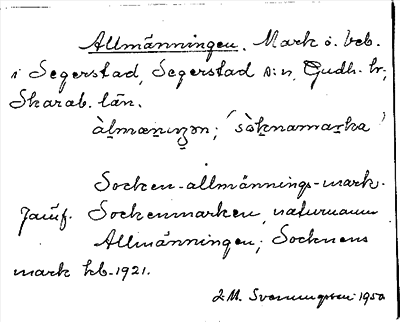 Allmänningen. Mark o. beb.
i Segerstad, Segerstad s:n, Gudh. hr,
Skarab. län.
àlmænɩŋən; 'sòknamarka'
Socken-allmännings-mark.
Jämf. Sockenmarken, naturnamn
Allmänningen; Socknens
mark hb. 1921.
J. M. Svenungsson 1950